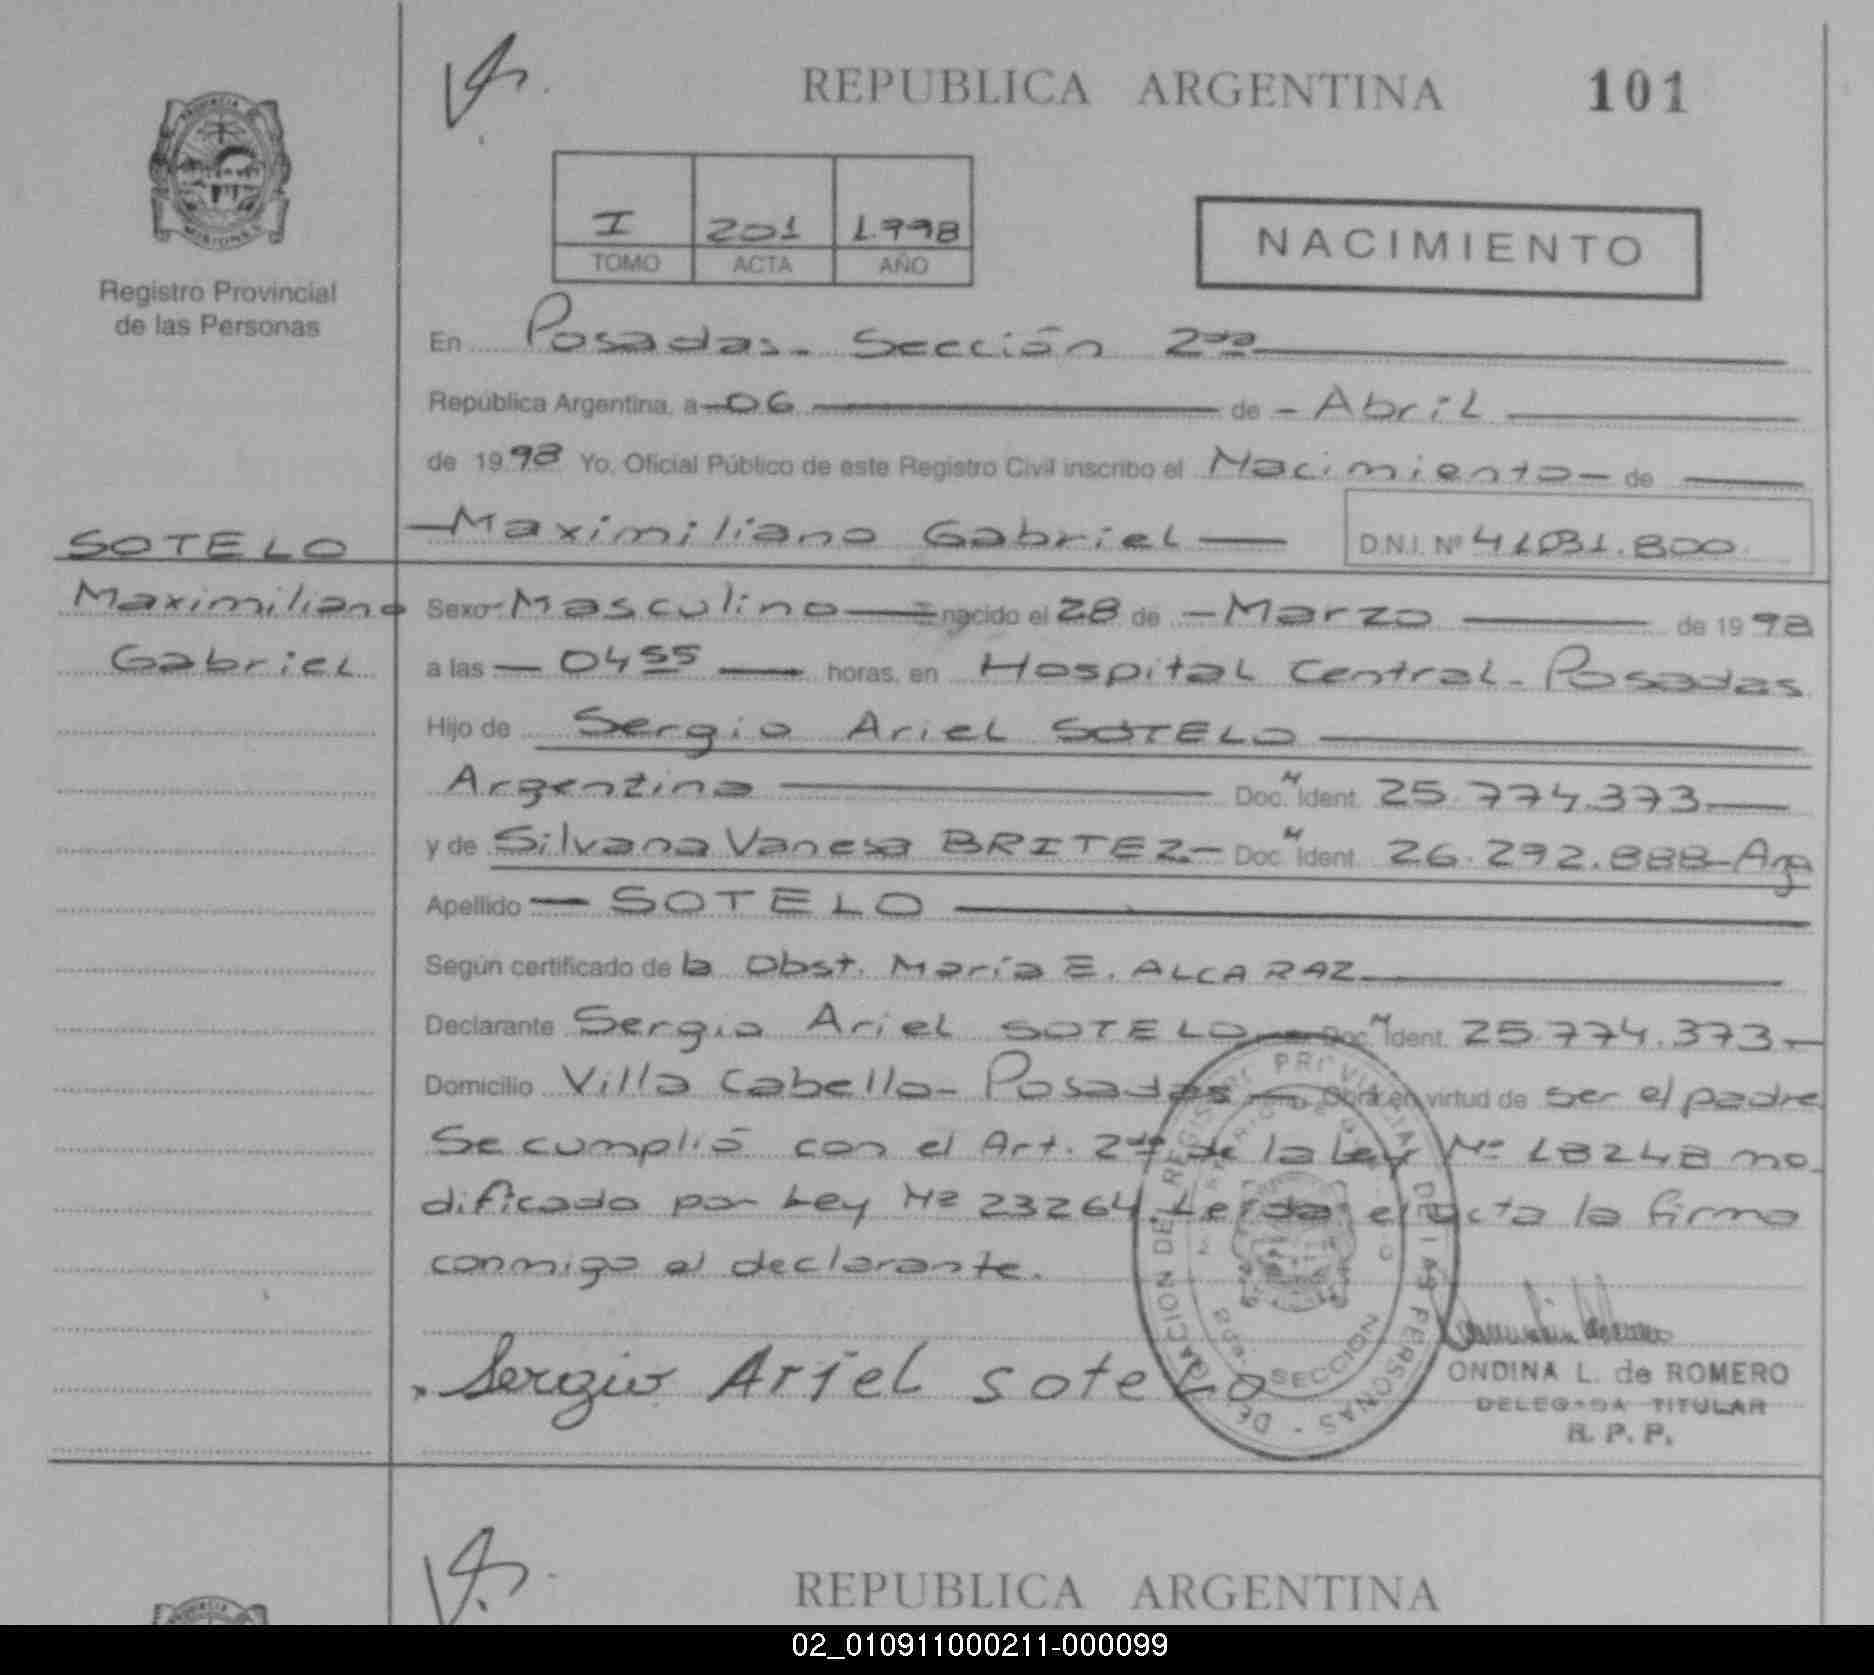 REPUBLICA ARGENTINA 101
PROVINCIA DE
MISIONES
Registro Provincial
de las Personas
I 201 1.998
TOMO ACTA AÑO
NACIMIENTO
En Posadas - Sección 2da
República Argentina, a 06 de - Abril
de 1998 Yo, Oficial Público de este Registro Civil inscribo el Nacimiento - de
SOTELO
Maximiliano
Gabriel
Maximiliano Gabriel D.N.I. Nº 41.031.800
Sexo Masculino nacido el 28 de - Marzo de 1998
a las 0455 horas, en Hospital Central - Posadas
Hijo de Sergio Ariel SOTELO
Argentina Doc. N Ident. 25.774.373
y de Silvana Vanesa BRITEZ - Doc. N Ident. 26.292.888 - Arg
Apellido SOTELO
Según certificado de la Obst. María E. ALCARAZ
Declarante Sergio Ariel SOTELO Doc. N Ident. 25.774.373 -
Domicilio Villa Cabello - Posadas Obra en virtud de ser el padre
Se cumplió con el Art. 2do de la Ley Nº 18248 mo
dificado por Ley Nº 23264. Leída el acta la firma
conmigo el declarante.
Sergio Ariel sotelo
DELEGACION DEL REGISTRO PROVINCIAL DE LAS PERSONAS
2da. SECCION
ONDINA L. de ROMERO
DELEGADA TITULAR
R. P. P.
REPUBLICA ARGENTINA
02_010911000211-000099